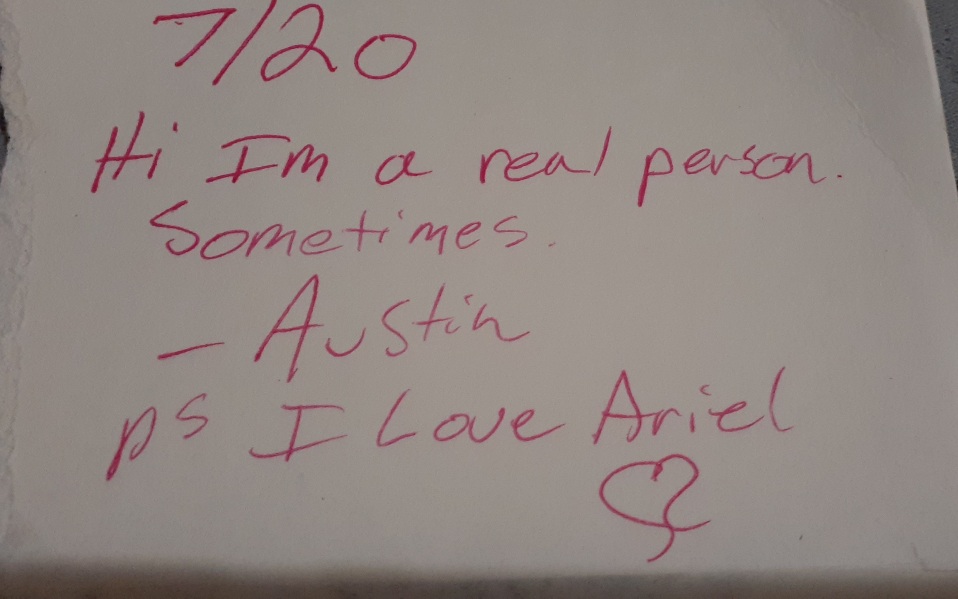 7/20
Hi Im a real person.
Sometimes.
- Austin
ps I Love Ariel